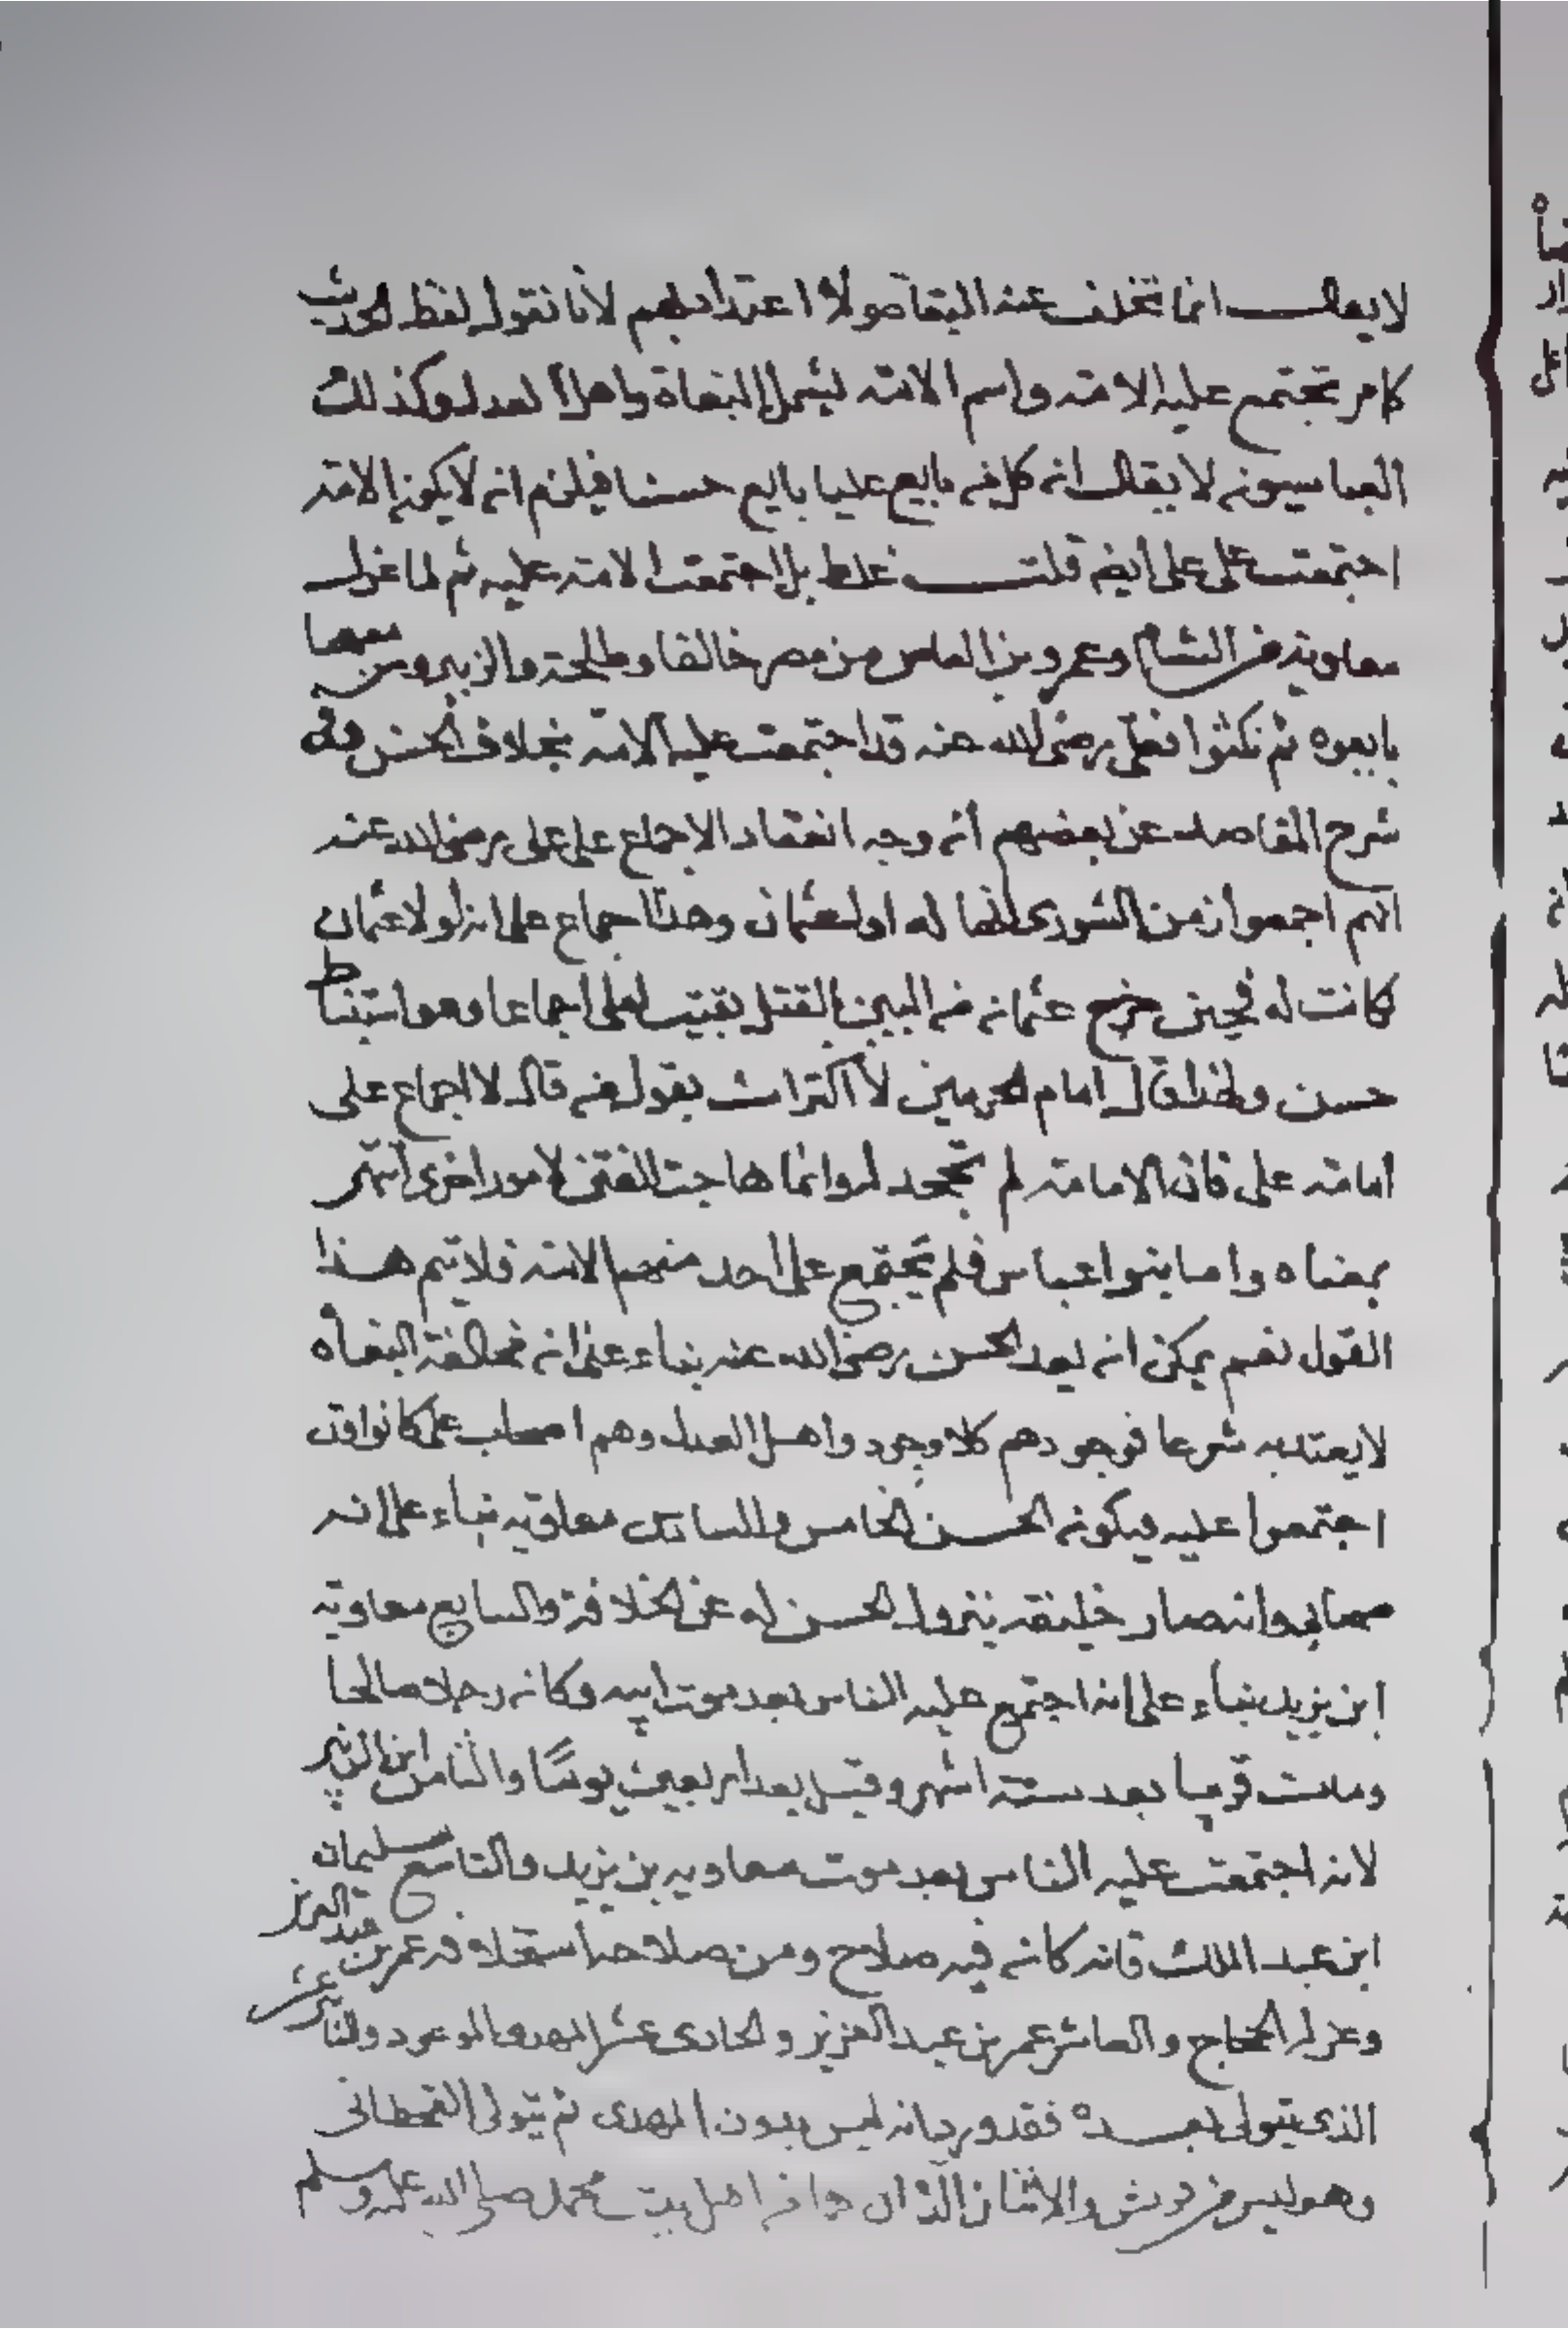 لا يقال انما تخلف عنه البغاة ولا اعتداد بهم لأنا نقول لفظ الحديث
كلهم تجتمع عليه الامة واسم الامة ليشمل البغاة واهل العدل وكذلك
العباسيون لا يقال انه كل من بايع عليا بايع حسنا فيلزم انه لا يكون الامة
اجتمعت على علي أيضا قلت غلط بل اجتمعت الامة عليه ثم لما عزل
معاوية من الشام وعمرو بن العاص من مصر خالفا وطلحة والزبير ومن معهما
بايعوه ثم نكثوا فعلي رضي الله عنه قد اجتمعت عليه الامة بخلاف الحسن وفي
شرح المقاصد عن بعضهم أنه وجه انعقاد الاجماع على علي رضي الله عنه
انهم اجمعوا زمن الشورى انها له او لعثمان وهذا اجماع على انه لولا عثمان
كانت له فحين خرج عثمان من البين بالقتل بقيت لعلي اجماعا وهو استنباط
حسن ولهذا قال امام الحرمين لا اكتراث بقول من قال لا اجماع على
امامة علي فان الامامة لم تجحد له وانما هاجت الفتن لامور اخرى انتهى
بمعناه واما بنوا عباس فلم يجتمع على احد منهم الامة فلا يتم هذا
القول نعم يمكن انه يعد الحسن رضي الله عنه بناء على انه مخالفة البغاة
لا يعتد به شرعا فوجودهم كلا وجود واهل العدل وهم اصحاب علي كانوا قد
اجتمعوا عليه فيكون الحسن الخامس والسادس معاوية بناء على انه
صحابي وانه صار خليفة بنزول الحسن له عن الخلافة والسابع معاوية
ابن يزيد بناء على انه اجتمع عليه الناس بعد موت ابيه وكان رجلا صالحا
ومات قريبا بعد ستة اشهر وقيل بعد اربعين يوما والثامن ابن الزبير
لانه اجتمعت عليه الناس بعد موت معاوية بن يزيد والتاسع سليمان
ابن عبد الملك فانه كان فيه صلاح ومن صلاحه استخلافه عمر بن عبد العزيز
وعزله الحجاج والعاشر عمر بن عبد العزيز والحادي عشر المهدي الموعود والثاني عشر
الذي يتولى بعده فقد ورد انه ليس بدون المهدي ثم يتولى القحطاني
وهو ليس من قريش والاثنان الذان هما من اهل بيت محمد صلى الله عليه وسلم